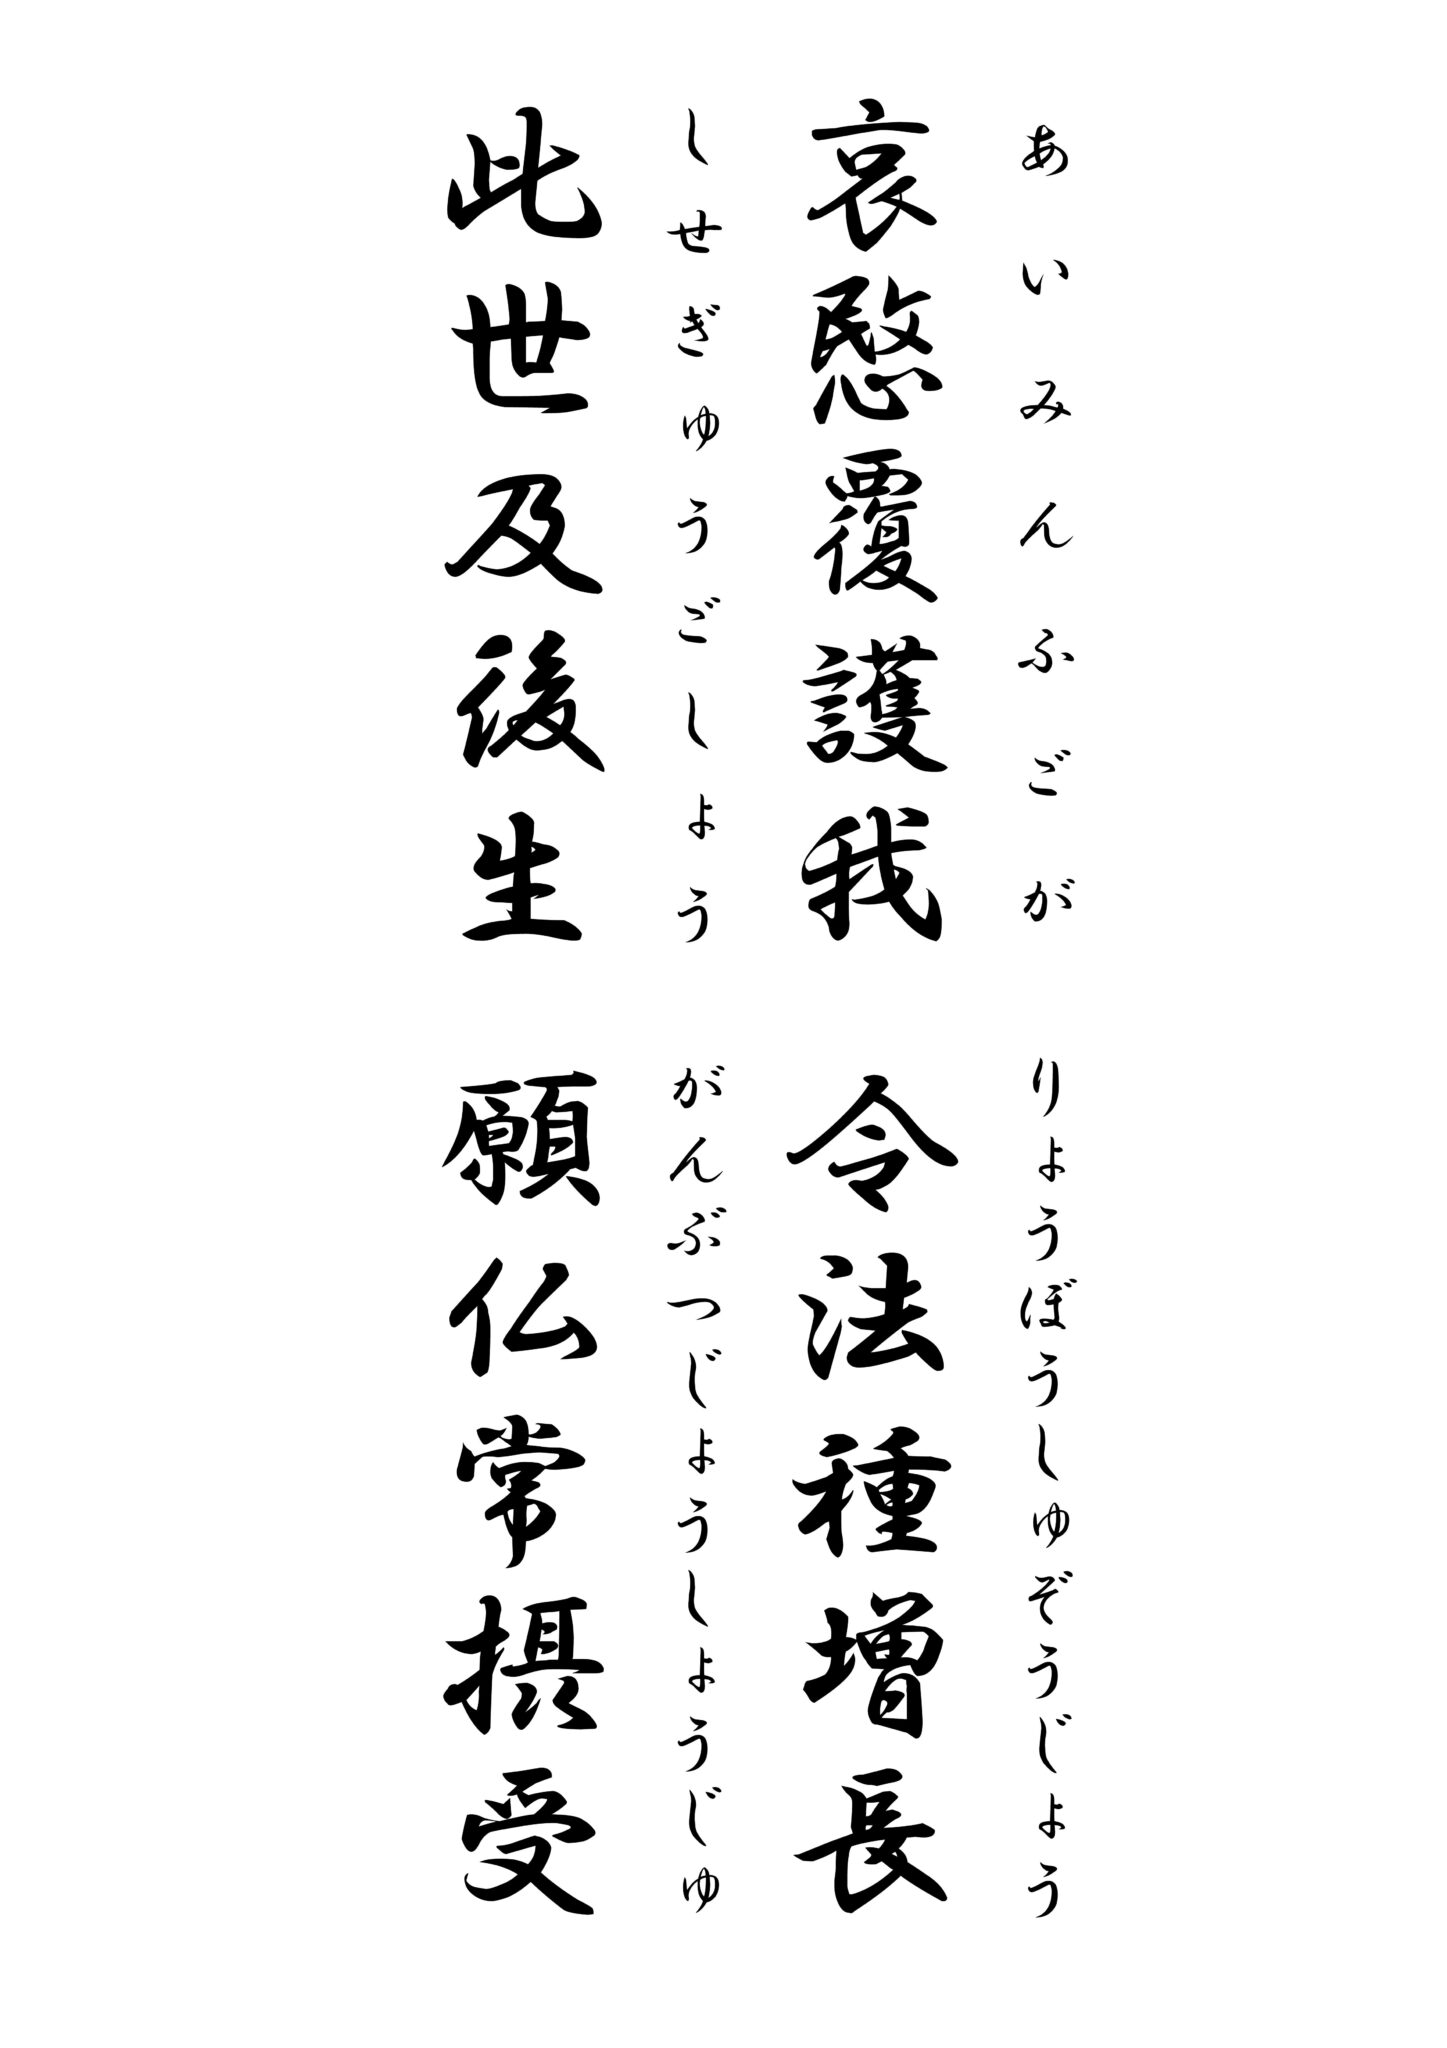 あいみんふごが　りょうぼうしゅぞうじょう
哀愍覆護我　令法種増長
しせぎゅうごしょう　がんぶつじょうしょうじゅ
此世及後生　願仏常摂受